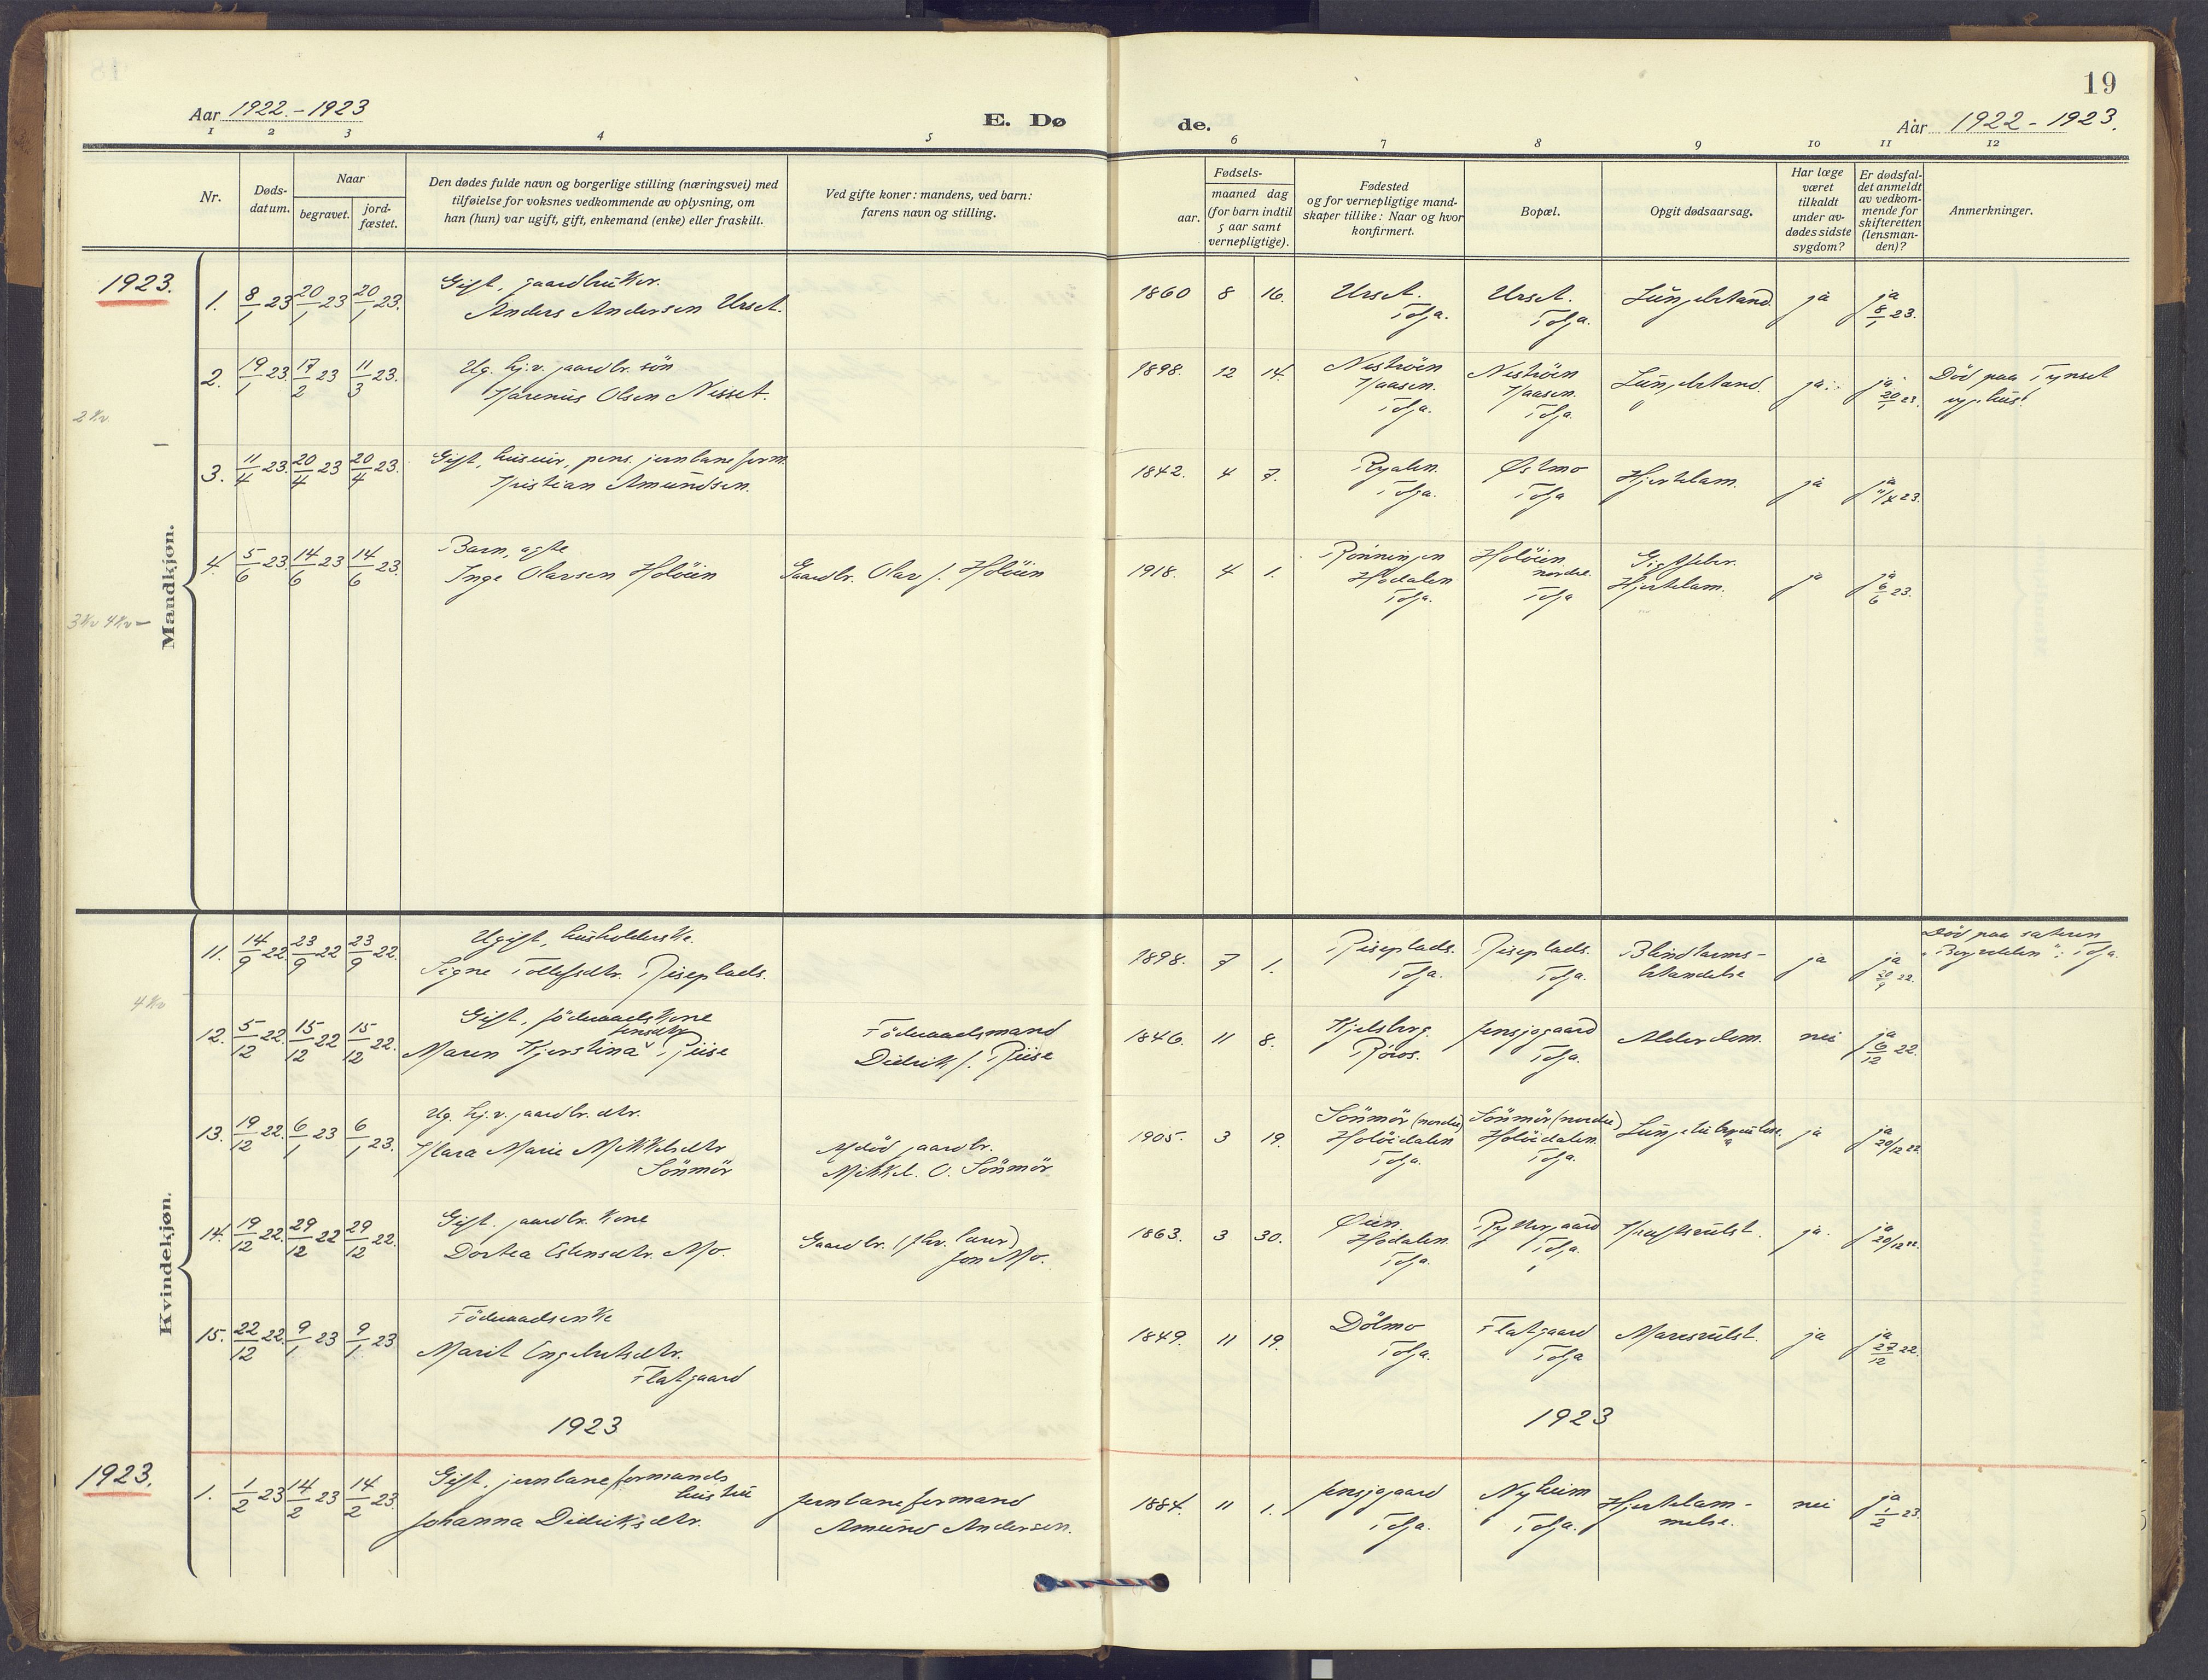 19
Aar 1922.-1923
E. Dø
de.
Aar 1922-1923.
1 2 3 4 5 6 7 8 9 10 11 12
Nr.
Døds-
datum.
Naar
begravet.
jord-
fæstet.
Den dødes fulde navn og borgerlige stilling (næringsvei) med
tilføielse for voksnes vedkommende av oplysning, om
han (hun) var ugift, gift, enkemand (enke) eller fraskilt.
Ved gifte koner: mandens, ved barn:
farens navn og stilling.
Fødsels-
aar.
maaned dag
(for barn indtil
5 aar samt
vernepligtige).
Fødested
og for vernepligtige mand-
skaper tillike: Naar og hvor
konfirmert.
Bopæl.
Opgit dødsaarsag.
Har læge
været
tilkaldt
under av-
dødes sidste
sygdom?
Er dødsfal-
det anmeldt
av vedkom-
mende for
skifteretten
(lensman-
den)?
Anmerkninger.
Mandkjøn.
1923.
1. 8/1 23 20/1 23 20/1 23. Gift, gaardbruker. Anders Andersen Urset. 1860 8 16. Urset. Tolga. Urset. Tolga. Lungebetænd. ja ja 8/1 23.
2. 19/1 23. 17/2 23 11/3 23. Ug. hj.v. gaardbr. søn Harenius Olsen Nesset. 1898. 12 14. Neströen Haasen. Tolga. Neströen Haasen. Tolga. Lungebetænd. ja. ja 20/1 23. Död paa Tynset sygehus.
2 Kv
3. 11/4 23. 20/4 23 20/4 23. Gift, huseier, pens. jernbaneform. Kristian Amundsen. 1842. 4 7. Ryalen. Tolga. Østmo Tolga Hjertelam. ja ja 11/4 23.
4. 5/6 23. 14/6 23 14/6 23. Barn, egte Inge Olavsen Holöien Gaardbr. Olav J. Holöien 1918. 4 1. Rönningen Hodalen Tolga. Holöien nordre. Tolga Gigtfeber. Hjertelam. ja ja 6/6 23.
3 Kv 4 Kv -
Kvindekjøn.
11. 14/9 22 23/9 22 23/9 22. Ugift, husholderske. Signe Tollefsdtr. Riseplads. 1898. 7 1. Riseplads. Tolga. Riseplads. Tolga. Blindtarms-betændelse ja ja 20/9 22. Död paa sætren
4 Kv
12. 5/12 22. 15/12 22 15/12 22. Gift, föderaadskone Maren Kjerstina Jensdtr Riise Föderaadsmand Didrik J. Riise 1846. 11 8. Kjelsberg. Röros. Jensjogaard Tolga. Alderdom. nei ja 6/12 22.
13. 19/12 22. 6/1 23 6/1 23. Ug. hj.v. gaardbr. dtr. Klara Marie Mikkelsdtr Sönmör Afdöd gaardbr. Mikkel. O. Sönmör 1905. 3 19. Sönmör (nordre) Holöidalen Tolga. Sönmör (nordre) Holöidalen Tolga. ja ja 20/12 22
14. 19/12 22. 29/12 22 29/12 22. Gift. gaardbr. kone Dortea Estensdtr. Mo. Gaardbr. Jon Mo. 1863. 3 30. Öien. Hodalen. Tolga. Ryttergaard Tolga. Kræftsvulst. ja. ja 20/12 22.
15. 22/12 22. 9/1 23 9/1 23. Föderaadsenke Marit Engebretsdtr. Flatgaard 1849. 11 19. Dölmo Tolga. Flatgaard Tolga Mavesvulst. ja ja 27/12 22.
1923
1923
1923.
1. 1/2 23 14/2 23 14/2 23. Gift, jernbaneformands hustru Johanna Didriksdtr. Jernbaneformand Amund Andersen. 1884. 11 1. Jensjogaard Tolga. Nyheim Tolga. Hjertelam-melse. nei ja 1/2 23.